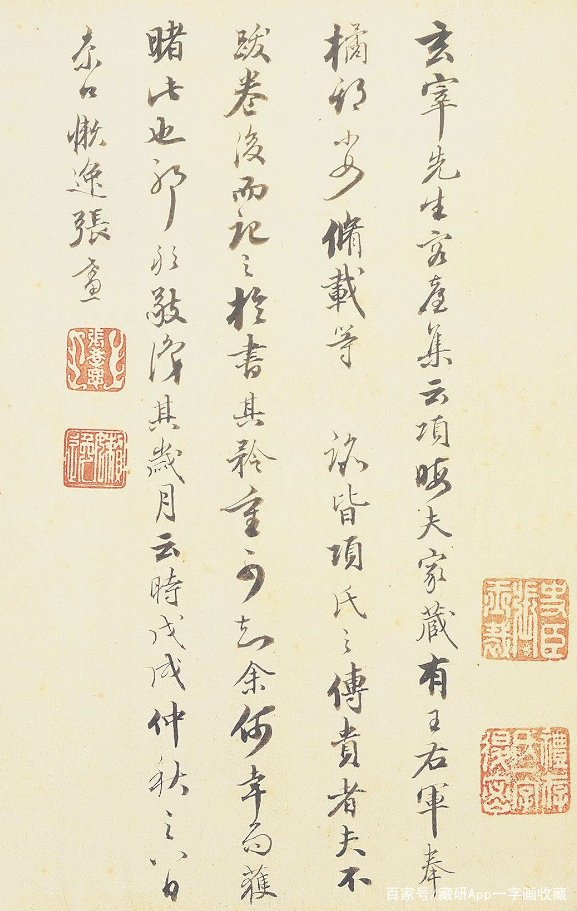 玄宰先生容臺集云項晦夫家藏有王右軍奉
橘 脩載等 皆項氏之傳貴者夫不
跋卷後而記之於書其矜重可知余何幸而獲
睹此也耶 敬識其歲月云時戊戌仲秋之八日
口懶逸張
懶逸
百家号/藏研App一字画收藏